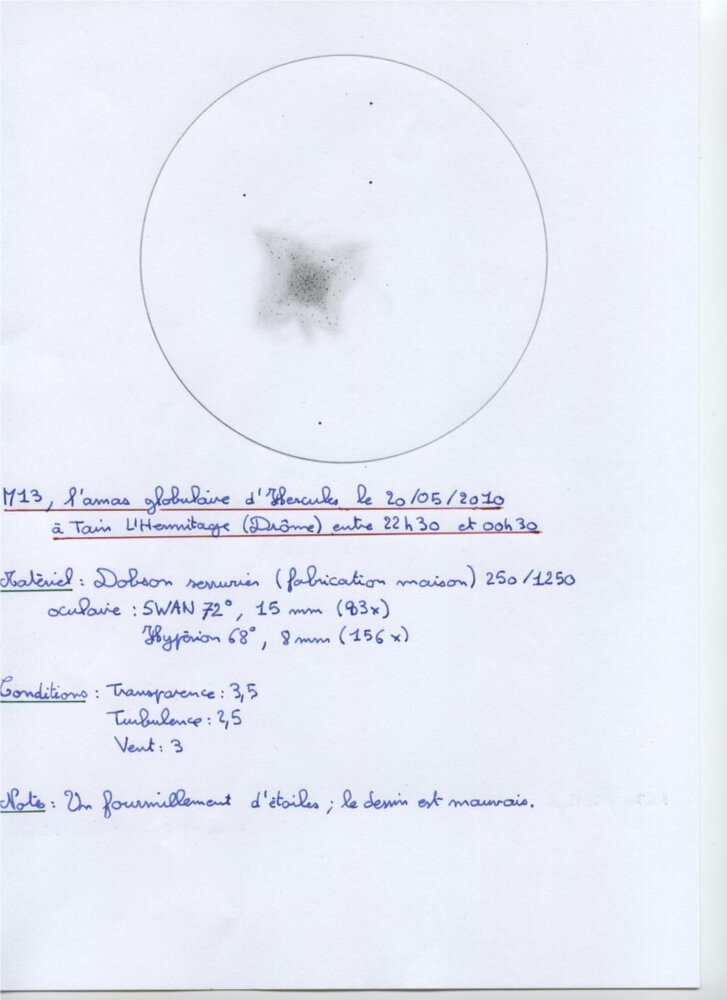 M13, l'amas globulaire d'Hercules le 20/05/2010
à Tain L'Hermitage (Drôme) entre 22h30 et 00h30
Matériel : Dobson serrurier (fabrication maison) 250/1250
oculaire : SWAN 72°, 15 mm (83x)
Hypérion 68°, 8mm (156x)
Conditions : Transparence : 3,5
Turbulence : 2,5
Vent : 3
Note : Un fourmillement d'étoiles ; le dessin est mauvais.